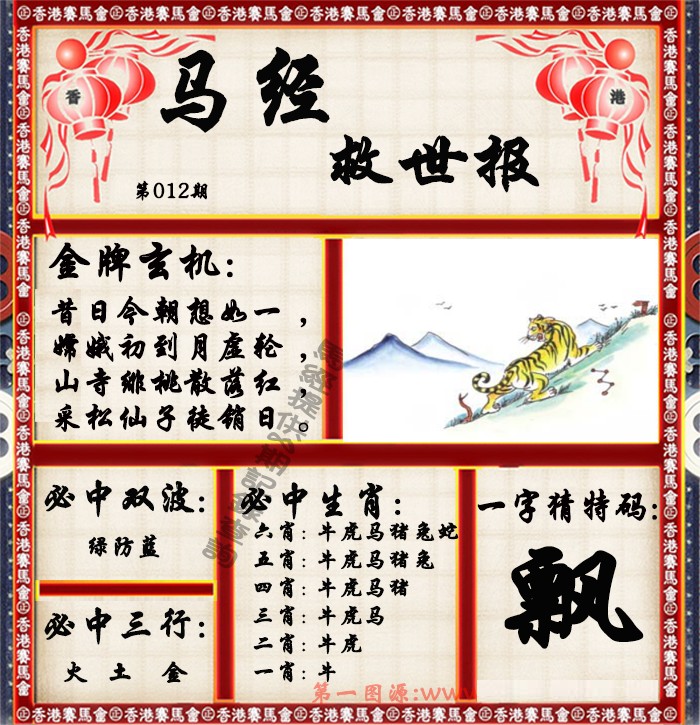 香港賽馬會
香
港
马经
救世报
第012期
金牌玄机：
昔日今朝想如一，
嫦娥初到月虚轮，
山寺绯桃散落红，
采松仙子徒销日。
必中双波：
绿防蓝
必中三行：
火 土 金
必中生肖：
六肖：牛虎马猪兔蛇
五肖：牛虎马猪兔
四肖：牛虎马猪
三肖：牛虎马
二肖：牛虎
一肖：牛
一字猜特码：
飘
第一图源:www